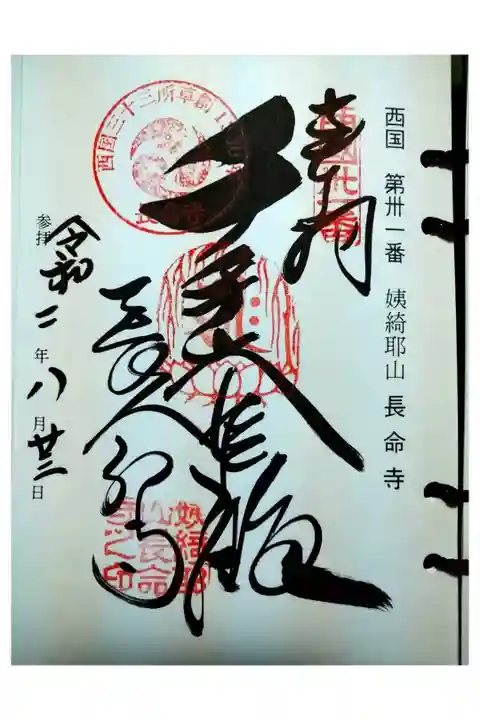 西国 第卅一番 姨綺耶山 長命寺
奉拝
西国卅一番
千手大悲殿
西国三十三所草創1300年
長命寺
姨綺耶山長命寺之印
参拝 令和二年八月廿三日